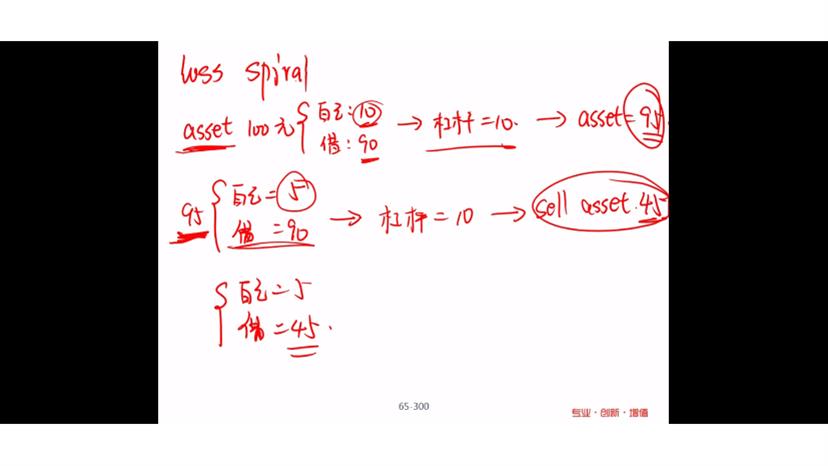 loss spiral
asset 100元 { 自己:10 → 杠杆=10. → asset=95.
借:90
95 { 自己=5 → 杠杆=10 → sell asset.45
借=90
{ 自己=5
借=45.
65-300
专业·创新·增值